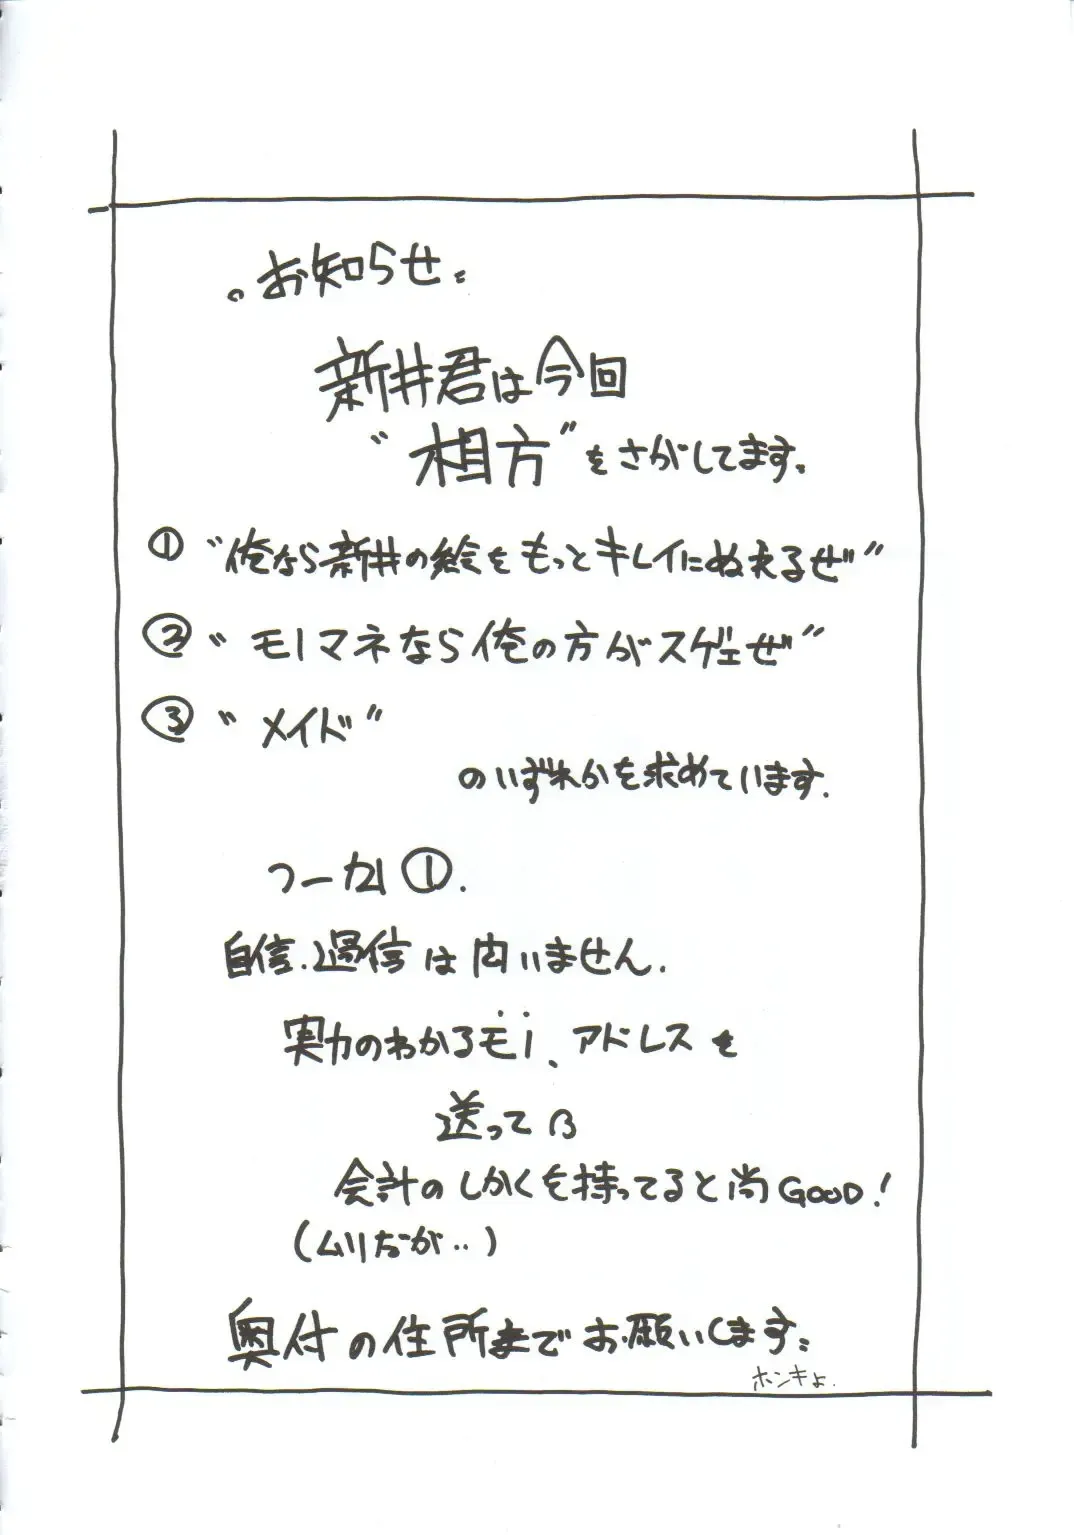 。お知らせ。
新井君は今回
"相方"をさがしてます。
① "俺なら新井の絵をもっとキレイにぬえるぜ"
② "モノマネなら俺の方がスゲェぜ"
③ "メイド"
のいずれかを求めています.
つーか①.
自信.過信は問いません.
実力のわかるモノ、アドレスを
送ってね
会計のしかくを持ってると尚GOOD!
(ムリだが‥)
奥付の住所までお願いします。
ホンキよ.